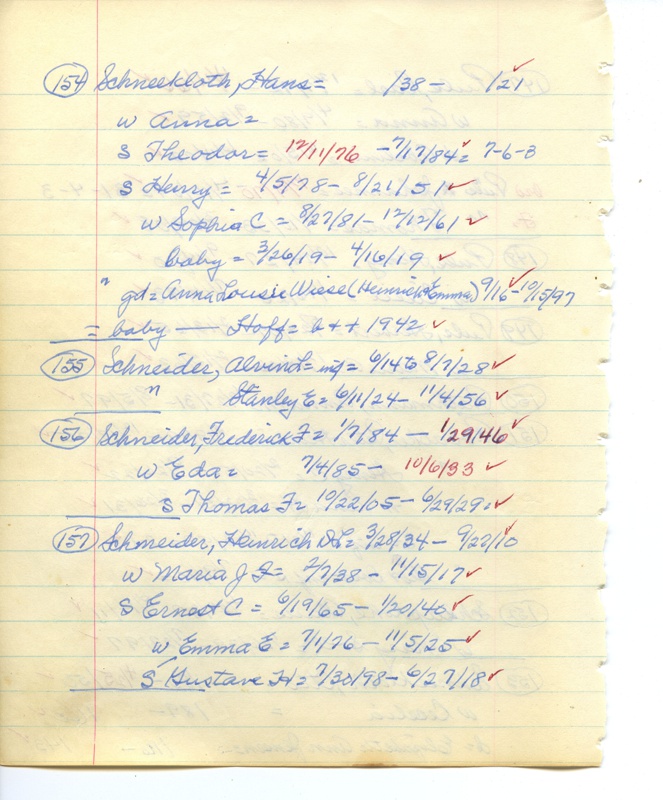 154 Schneekloth, Hans = /38 - /21 ✓
w Anna =
S Theodor = 12/11/76 - 7/17/84 ✓ = 7-6-3
S Henry = 4/5/78 - 8/21/51 ✓
w Sophia C = 8/27/81 - 12/12/61 ✓
baby = 3/26/19 - 4/16/19 ✓
" gd = Anna Lousie Wiese (Heinrich & Emma) 9/16 ✓ - 10/15/97
= baby — Hoff = b + + 1942 ✓
155 Schneider, Alvin L = inf = 6/14 to 8/7/28 ✓
" Stanley E = 6/11/24 - 11/4/56 ✓
156 Schneider, Frederick F = 1/7/84 - 1/29/46 ✓
w Eda = 7/4/85 - 10/6/33 ✓
S Thomas F = 10/22/05 - 6/29/29 = ✓
157 Schmeider, Heinrich D L = 3/28/34 - 9/22/10 ✓
w Maria J F = 2/7/38 - 11/15/17 ✓
S Ernest C = 6/19/65 - 1/20/40 ✓
w Emma E = 7/1/76 - 11/5/25 ✓
S Gustave H = 7/30/98 - 6/27/18 ✓